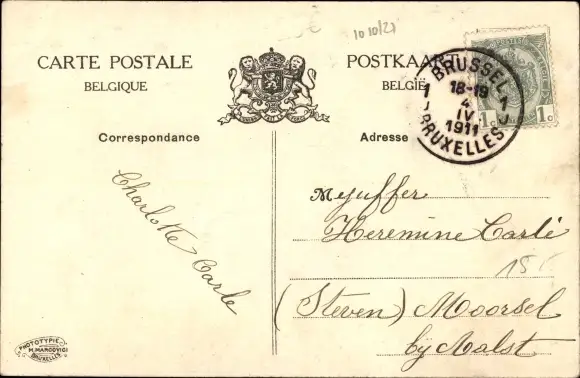 10 10/27
CARTE POSTALE
BELGIQUE
POSTKAART
BELGIË
BRUSSEL
1 1
18-19
4
IV
1911
BRUXELLES
1c 1c
Correspondance
Adresse
Charlotte Carlé
Mejuffer
Heremine Carlé
15
(Steven) Moorsel
bij Aalst
PHOTOTYPIE
M. MARCOVICI
BRUXELLES